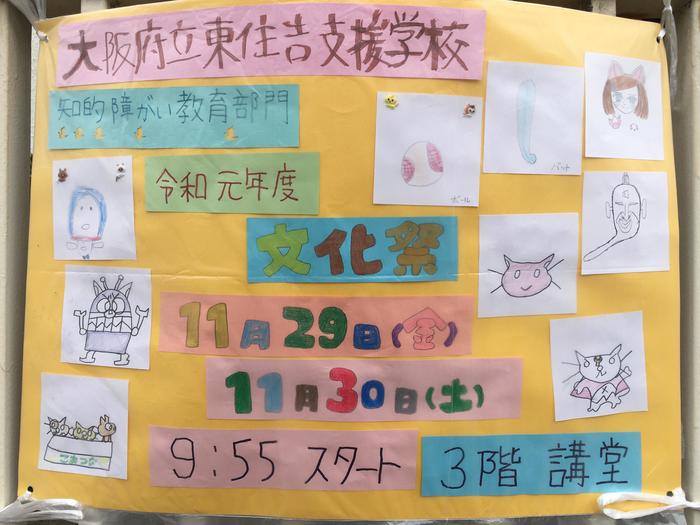 大阪府立東住吉支援学校
知的障がい教育部門
令和元年度
ボール
バット
文化祭
11月29日(金)
11月30日(土)
9:55 スタート
3階 講堂